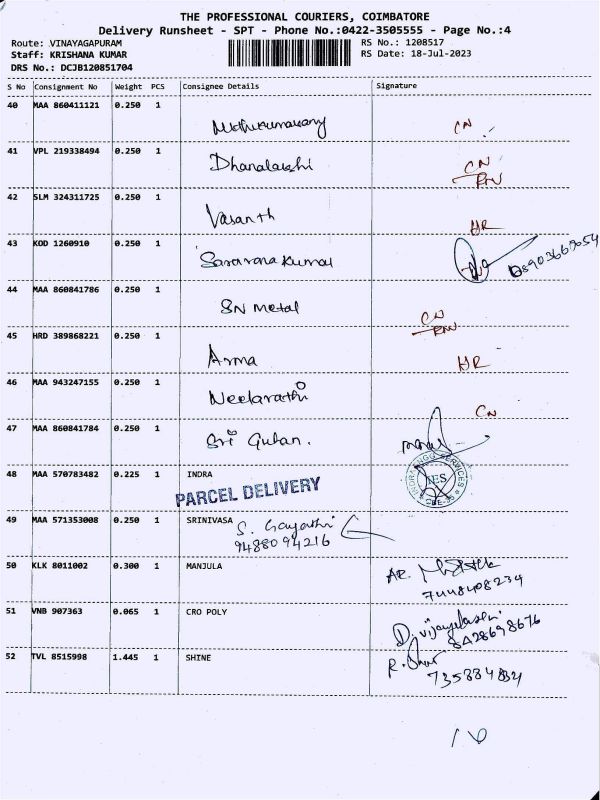 THE PROFESSIONAL COURIERS, COIMBATORE
Delivery Runsheet - SPT - Phone No.:0422-3505555 - Page No.:4
Route: .VINAYAGAPURAM RS No.: 1208517
Staff: KRISHANA KUMAR RS Date: 18-Jul-2023
DRS No.: DCJB120851704
S No Consignment No Weight PCS Consignee Details Signature
40 MAA 860411121 0.250 1
CN
41 VPL 219338494 0.250 1
Dhanalakshi CN
RN
42 SLM 324311725 0.250 1
Vasanth HR
43 KOD 1260910 0.250 1
Saravana Kumar
44 MAA 860841786 0.250 1
SN Metal CN
RN
45 HRD 389868221 0.250 1
Arma HR
46 MAA 943247155 0.250 1
Neelarathi CN
47 MAA 860841784 0.250 1
Sri Guhan.
48 MAA 570783482 0.225 1 INDRA
PARCEL DELIVERY
49 MAA 571353008 0.250 1 SRINIVASA
S. Gayathri
9488094216
50 KLK 8011002 0.300 1 MANJULA
51 VNB 907363 0.065 1 CRO POLY
D. Vijayalaxmi
52 TVL 8515998 1.445 1 SHINE